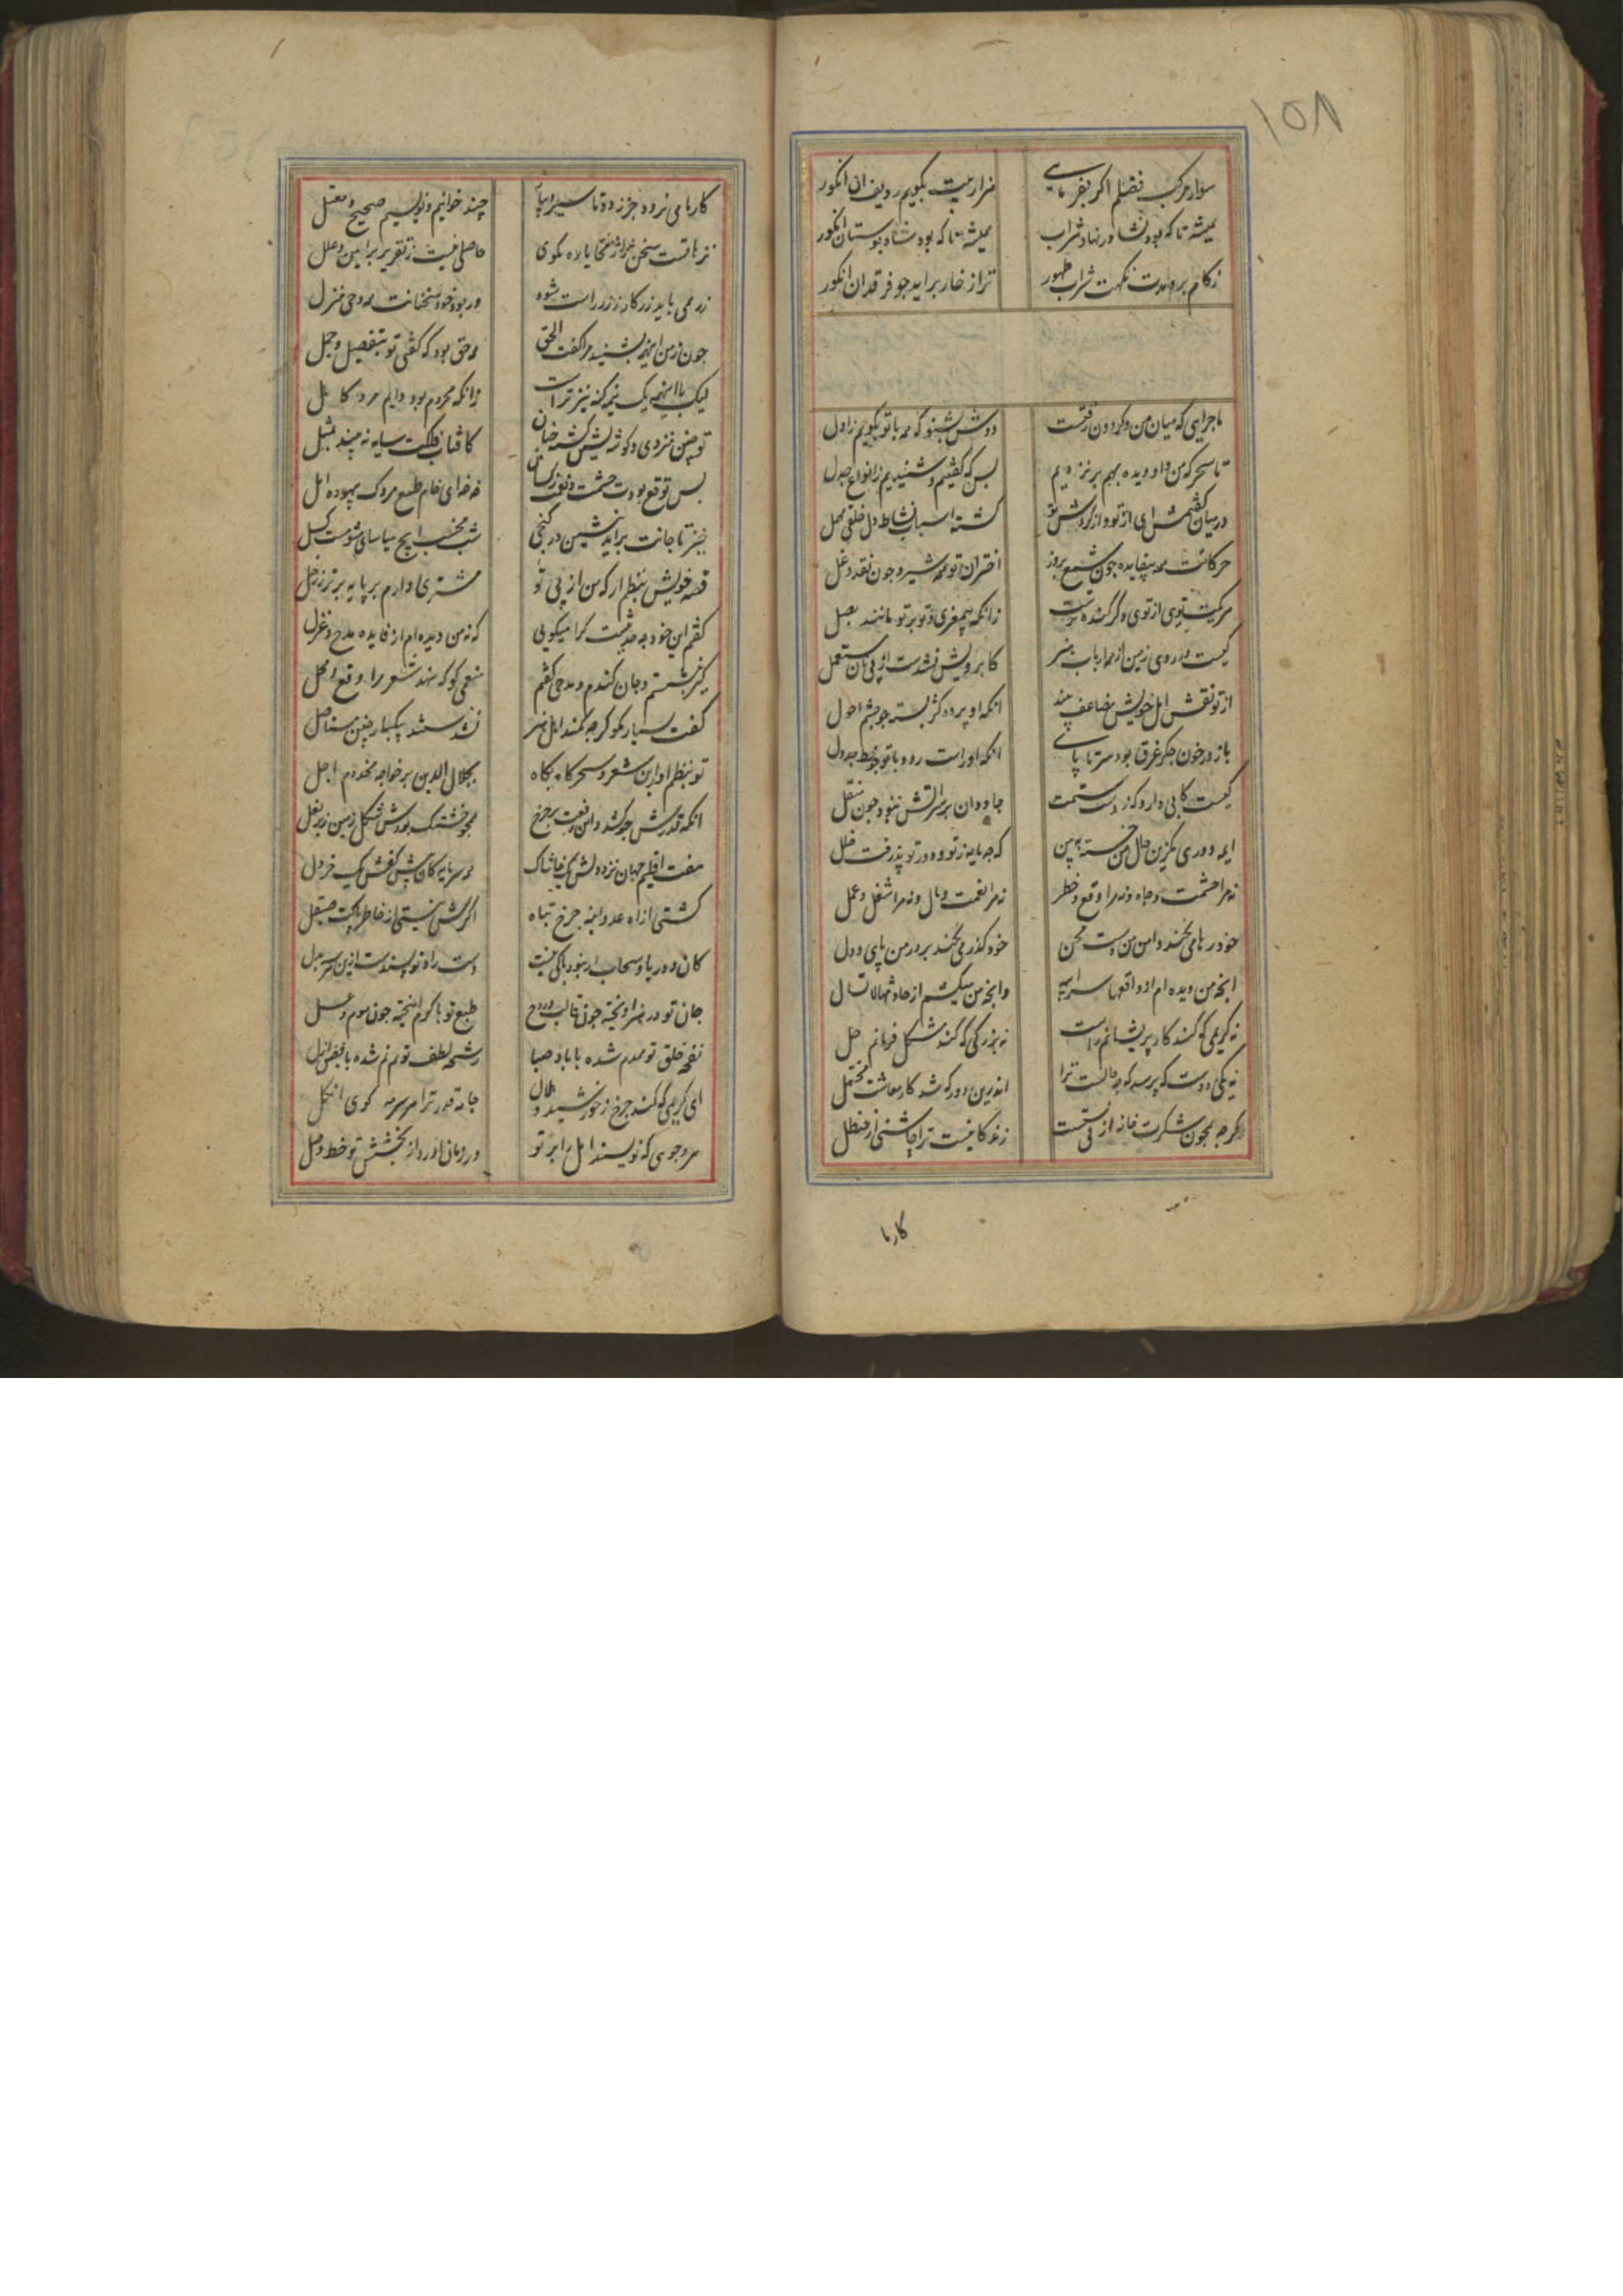 ۱۵۸
سوار مرکب فضلم اکر بفرمایی هزار بیت بکویم ردیف ان انکور
همیشه تا که بود نشا در نهاد شراب همیشه تا که بود شاه بوستان انکور
زکام برد نکهت شراب طهور ترا ز خار براید جو فرقدان انکور
ماجرایی که میان من و کردون رفتست دوش بشنو که همه با تو بکویم ز اول
تا سحر که من و او دیده بهم بر نزدیم بس که کفتیم و شنیدیم ز انواع جدل
در میان کفتمش ای از تو و از کردش تو کشته اسباب نشاط دل خلقی مهمل
حرکاتت همه بیفایده جون شمع بروز اختران تو همه شیره جون نقد دغل
زانکه بیمغزی و تو بر تو مانند بصل
کیست در روی زمین از همه ارباب هنر کابرویش نشدست از پی نان مستعمل
از تو نقش امل خویش مضاعف بیند انکه او پرده کژ بسته جو جشم احول
باز در خون جکر غرق بود سر تا پای انکه او راست رود با تو جو خط جدول
کیست کابی دارد کز دست ستمت جاودان بر سر اتش نبود جون منقل
که جه مایه ز تو و دور تو پذرفت خلل
نه مرا حشمت و جاه و نه مرا وقع و خطر نه مرا نعمت و مال و نه مرا شغل و عمل
خود رها می نکند دامن من دست محن خود کذر می نکند بر در من پای دول
انجه من دیده ام از واقعها سراپای وانجه من میکشم از حادثها لا تسال
نه کریمی که کند کار پریشانم راست نه بزرکی که کند مشکل فرمانم حل
نه یکی دوست که پرسد که جه حالست ترا اندرین دور که شد کار معاشت مختل
کرجه همجون شکرت خانه از نی بستست زندکانیست ترا جاشنی از حنظل
کارها
کارها می نرود جز ز ده تا سیراب چند خوانیم و نویسیم صحیح و معتل
ترهاتست سخن یاده مکوی حاصلی نیست ز تقریر براهین و علل
زر همی باید زر کار ز زر راست شود ور بود خود سخنانت همه وحی منزل
جون ز من اینهمه بشنید مرا کفت الحق همه حق بود که کفتی تو بتفصیل و جمل
لیک با اینهمه یک نیز کنه نیز تراست زانکه محروم بود دایم مرد کاهل
تو جنین منزوی و کوشه نشین کشته جنان کافتاب فلکت سایه نه بیند بمثل
پس توقع بودت حشمت و نعمت ز کسان خه خه ای خام طمع مردک بیهوده امل
خیز تا جانت براید منشین در کنجی شب مخسب ایج میاسای شومست کسل
قصه خویش بنظم ار که من از پی تو مشتری دارم بر پایه برتر ز زحل
کفتم این خود به حدیثست کرا میکویی که نه من دیده ام از فایده مدح و غزل
کیر بنشستم و جان کندم و مدحی کفتم منعمی کو که نهد شعر مرا وقع و محل
کفت بسیار مکو کرجه کمند اهل هنر نشدستند بیکبار جنین مستاصل
تو بنظم اور این شعر و سحرکاه بکاه بجلال الدین بر خواجه مخدوم اجل
انکه قدرش جو کشد دامن رفعت بر جرخ همجو خشتک بودش شکل زمین زیر بغل
هفت اقلیم جهان نزد دلش یک خاشاک هر سرمایه کان پیش کفش یک خردل
کشتی از اه عدو اینه جرخ تباه اکرش نیستی از خاطر پاکت صیقل
کان و دریا و سحاب ار نبود باکی نیست دست راد تو بسندست ازین هر سه بدل
جان تو در هنر اویخته جون قالب و روح طبع تو با کرم امیخته جون موم و عسل
نفحه خلق تو همدم شده با باد صبا رشحه لطف تو همنم شده با فیض ازل
ای کریمی که کند جرخ ز خورشید و هلال جامه قدر ترا هر سر مه کوی انکل
هر وجوی که نویسند امل را بر تو در زمان اورد از بخشش تو خط و حمل